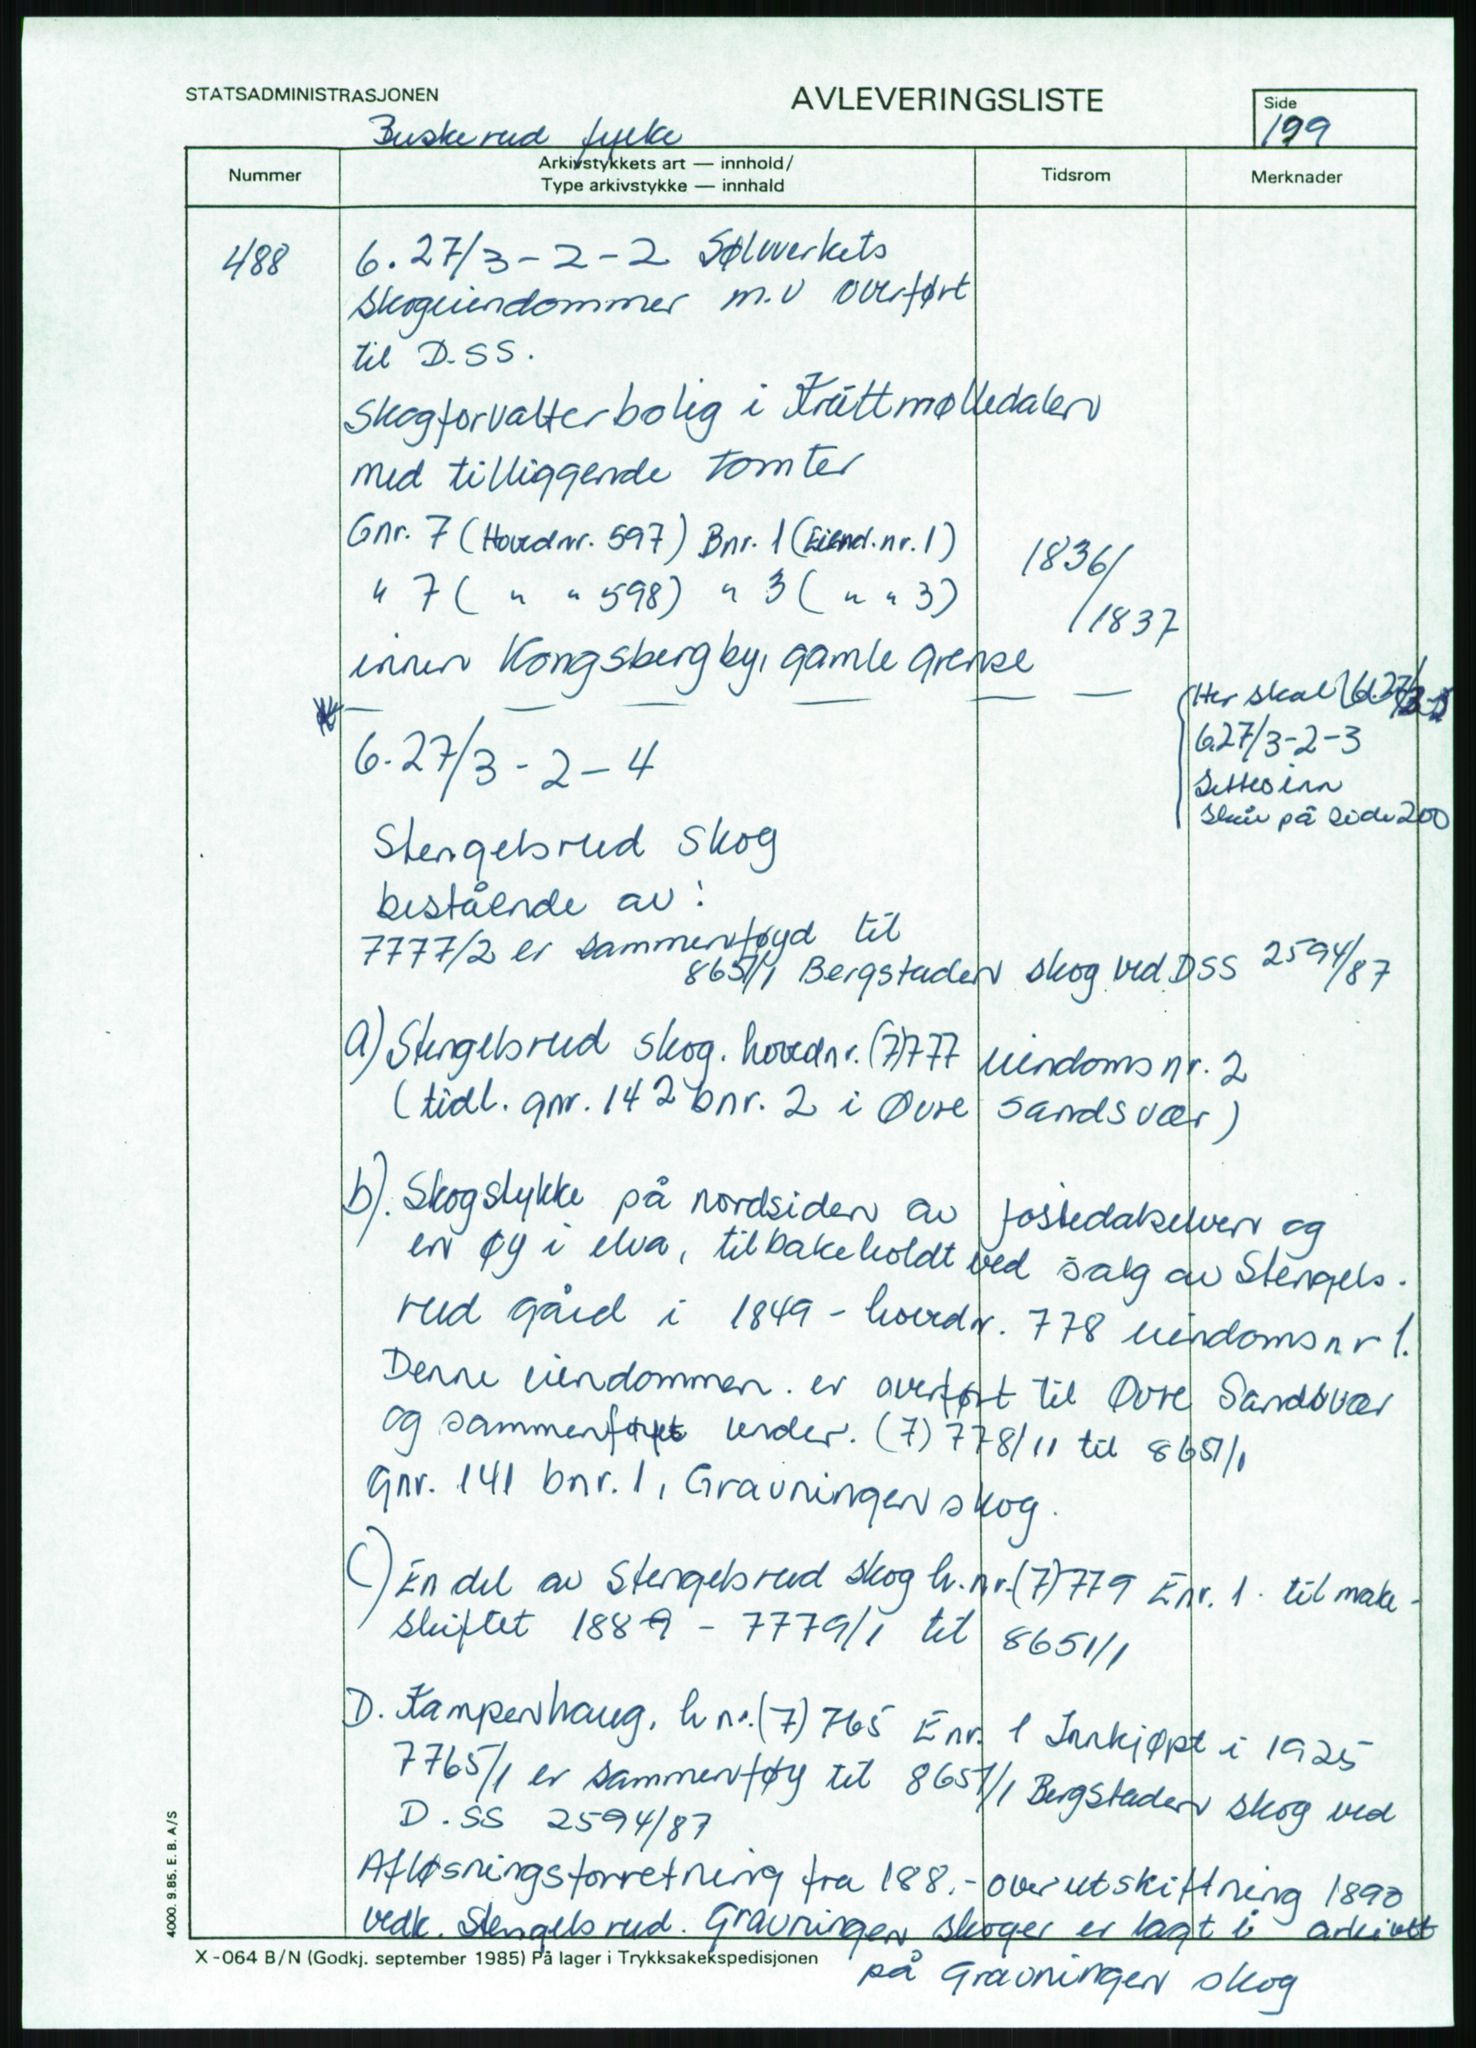 STATSADMINISTRASJONEN
AVLEVERINGSLISTE
Side
199
Buskerud fylke
Nummer
Arkivstykkets art — innhold/
Type arkivstykke — innhald
Tidsrom
Merknader
488
6.27/3-2-2 Sølvverkets
skogeiendommer m.v overført
til D.SS.
Skogforvalterbolig i Kråttmølledalen
med tilliggende tomter
Gnr. 7 (Hovednr. 597) Bnr. 1 (Eiend.nr. 1)
" 7 ( " " 598) " 3 ( " " 3)
1836/
/1837
innen Kongsberg by, gamle grense
Her skal
6.27/3-2-3
settes inn
skår på side 200
6.27/3-2-4
Stengelsrud skog
bestående av:
7777/2 er sammenføyd til
8651/1 Bergstaden skog ved DSS 2594/87
a) Stengelsrud skog. hovednr. (7)777 eiendomsnr. 2
(tidl. gnr. 142 bnr. 2 i Øvre Sandsvær)
b). Skogstykke på nordsiden av Jostedalselven og
en øy i elva, tilbakeholdt ved salg av Stengels-
rud gård i 1849 - hovednr. 778 eiendomsnr 1.
Denne eiendommen er overført til Øvre Sandsvær
og sammenføyet under. (7) 778/11 til 8651/1
gnr. 141 bnr. 1, Gravningen skog.
C) En del av Stengelsrud skog h.nr.(7)779 Enr. 1. til make-
skiftet 1889 - 7779/1 til 8651/1
D. Kampenhaug, h nr.(7) 765 Enr. 1 Innkjøpt i 1925
7765/1 er sammenføy til 8651/1 Bergstaden skog ved
D.SS 2594/87
Afløsningsforretning fra 188.- over utskiftning 1890
vedk. Stengelsrud. Gravningen skoger er lagt i arkivet
på Gravningen skog
4000. 9.85. E. B. A/S
X-064 B/N (Godkj. september 1985) På lager i Trykksakekspedisjonen